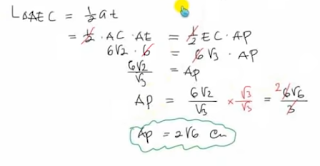 L△AEC = 1/2 a t
= 1/2 · AC · AE = 1/2 EC · AP
6√2 · 6 = 6√3 · AP
6√2/√3 = AP
AP = 6√2/√3 × √3/√3 = 2 6√6/3
Ap = 2√6 cm